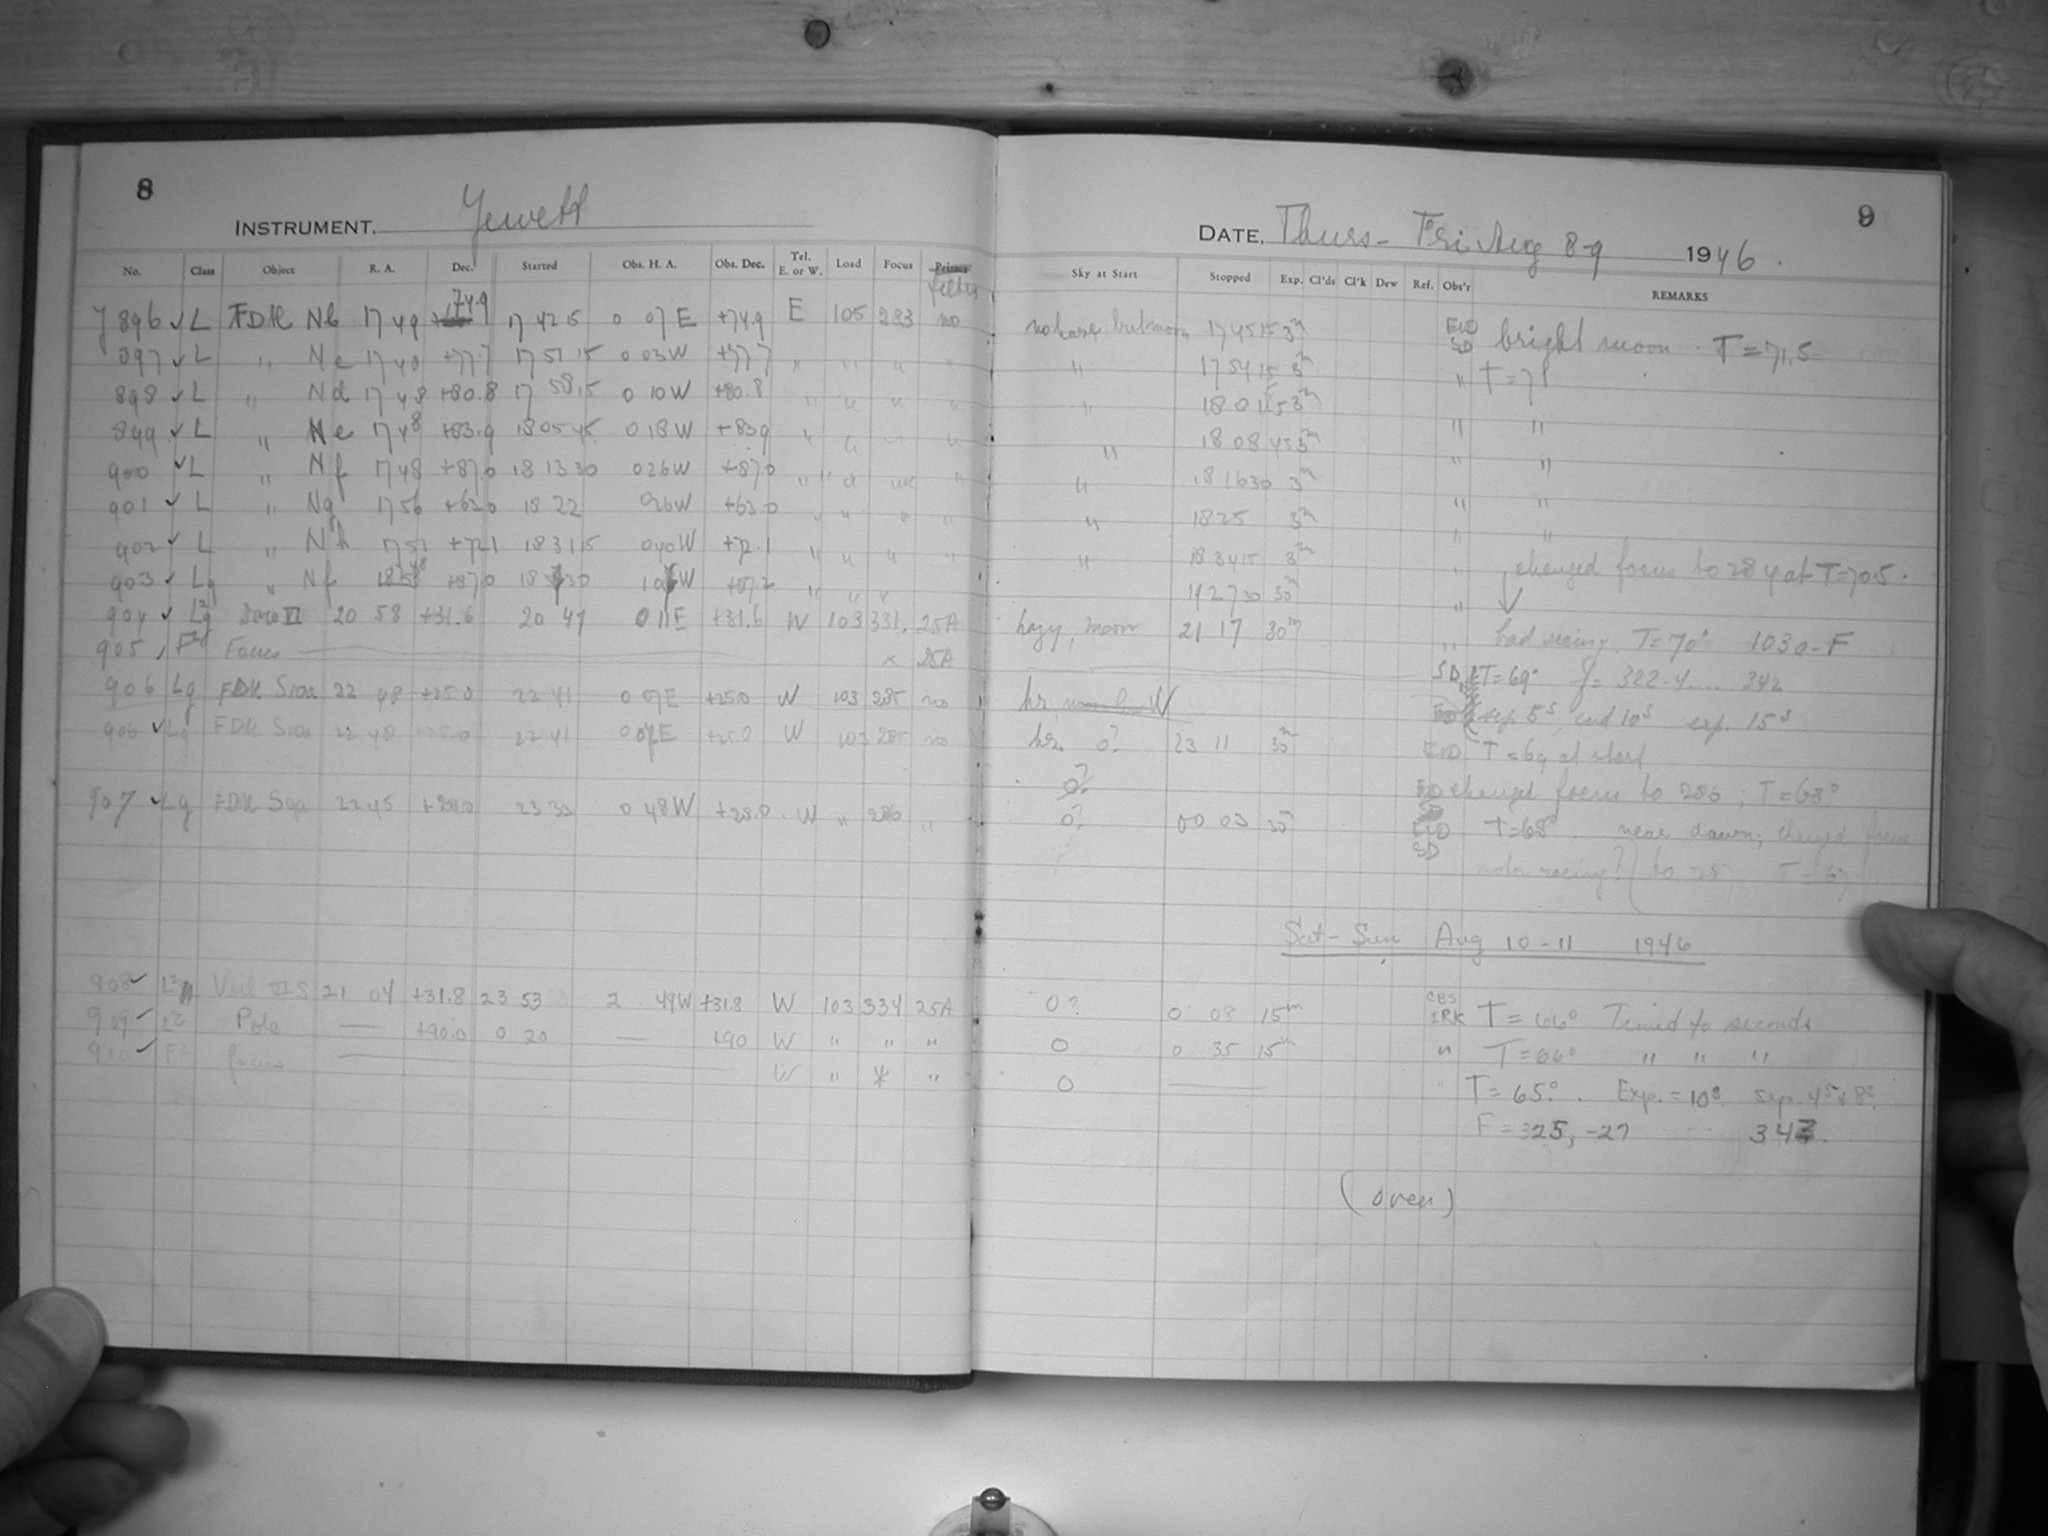 8
INSTRUMENT. Jewett
No. Class Object R. A. Dec. Started Obs. H. A. Obs. Dec. Tel. E. or W. Load Focus filter
7896 ✓ L FDH Nb 17 49 74.9 17 42 15 0 07 E +74.9 E 105 283 no
897 ✓ L " Nc 17 49 +77.7 17 51 15 0 03 W +77.7 " " " "
898 ✓ L " Nd 17 48 +80.8 17 58 15 0 10 W +80.8 " " " "
899 ✓ L " Ne 17 48 +83.9 18 05 45 0 18 W +83.9 " " " "
900 ✓ L " Nf 17 48 +87.0 18 13 30 0 26 W +87.0 " " " "
901 ✓ L " Ng 17 56 +63.0 18 22 0 26 W +63.0 " " " "
902 ✓ L " Nh 17 51 +72.1 18 31 15 0 40 W +72.1 " " " "
903 ✓ Lg " Nf +87.0 W +87.2 " " "
904 ✓ 20 58 +31.6 20 47 0 11 E +31.6 W 103 331. 25A
905 Focus x 25A
906 Lg FDH S10a 22 48 +25.0 22 41 0 07 E +25.0 W 103 285 no
906 ✓ Lg FDH S10a 22 48 +25.0 22 41 0 07 E +25.0 W 103 285 no
907 ✓ Lg FDH S9a 22 45 +28.0 23 33 0 48 W +28.0 W " 286 "
908 ✓ Veil II S 21 04 +31.8 23 53 2 49 W +31.8 W 103 334 25A
909 ✓ Pole — +90.0 0 20 — +90 W " " "
910 ✓ F² focus W " * "
9
DATE. Thurs - Fri Aug 8-9 1946.
Sky at Start Stopped Exp. Cl'ds Cl'k Dew Ref. Obs'r REMARKS
no haze but moon 17 45 15 3m EWD SD bright moon. T = 71.5
" 17 54 15 3m " T = 71
" 18 01 15 3m " "
" 18 08 45 3m " "
" 18 16 30 3m " "
" 18 25 3m " "
" 18 34 15 3m " changed focus to 284 at T=70.5.
19 27 30 30m "
hazy, moon 21 17 30m " bad seeing, T = 70° 103a-F
SD T = 69° f = 322.4.... 342
sep 5s, end 10s exp. 15s
hr. 0? 23 11 30m EWD T = 69 at start
0? changed focus to 286; T = 68°
0? 00 03 30m EWD SD T = 68°. near dawn; changed focus
to 287. T = 67
Sat - Sun Aug 10 - 11 1946
0? 0 08 15m CBS IRK T = 66° Timed to seconds
0 0 35 15m " T = 66° " " "
0 " T = 65°. Exp. = 10s. sep. 4s + 8s.
F = 325, -27 ..... 347.
(over)